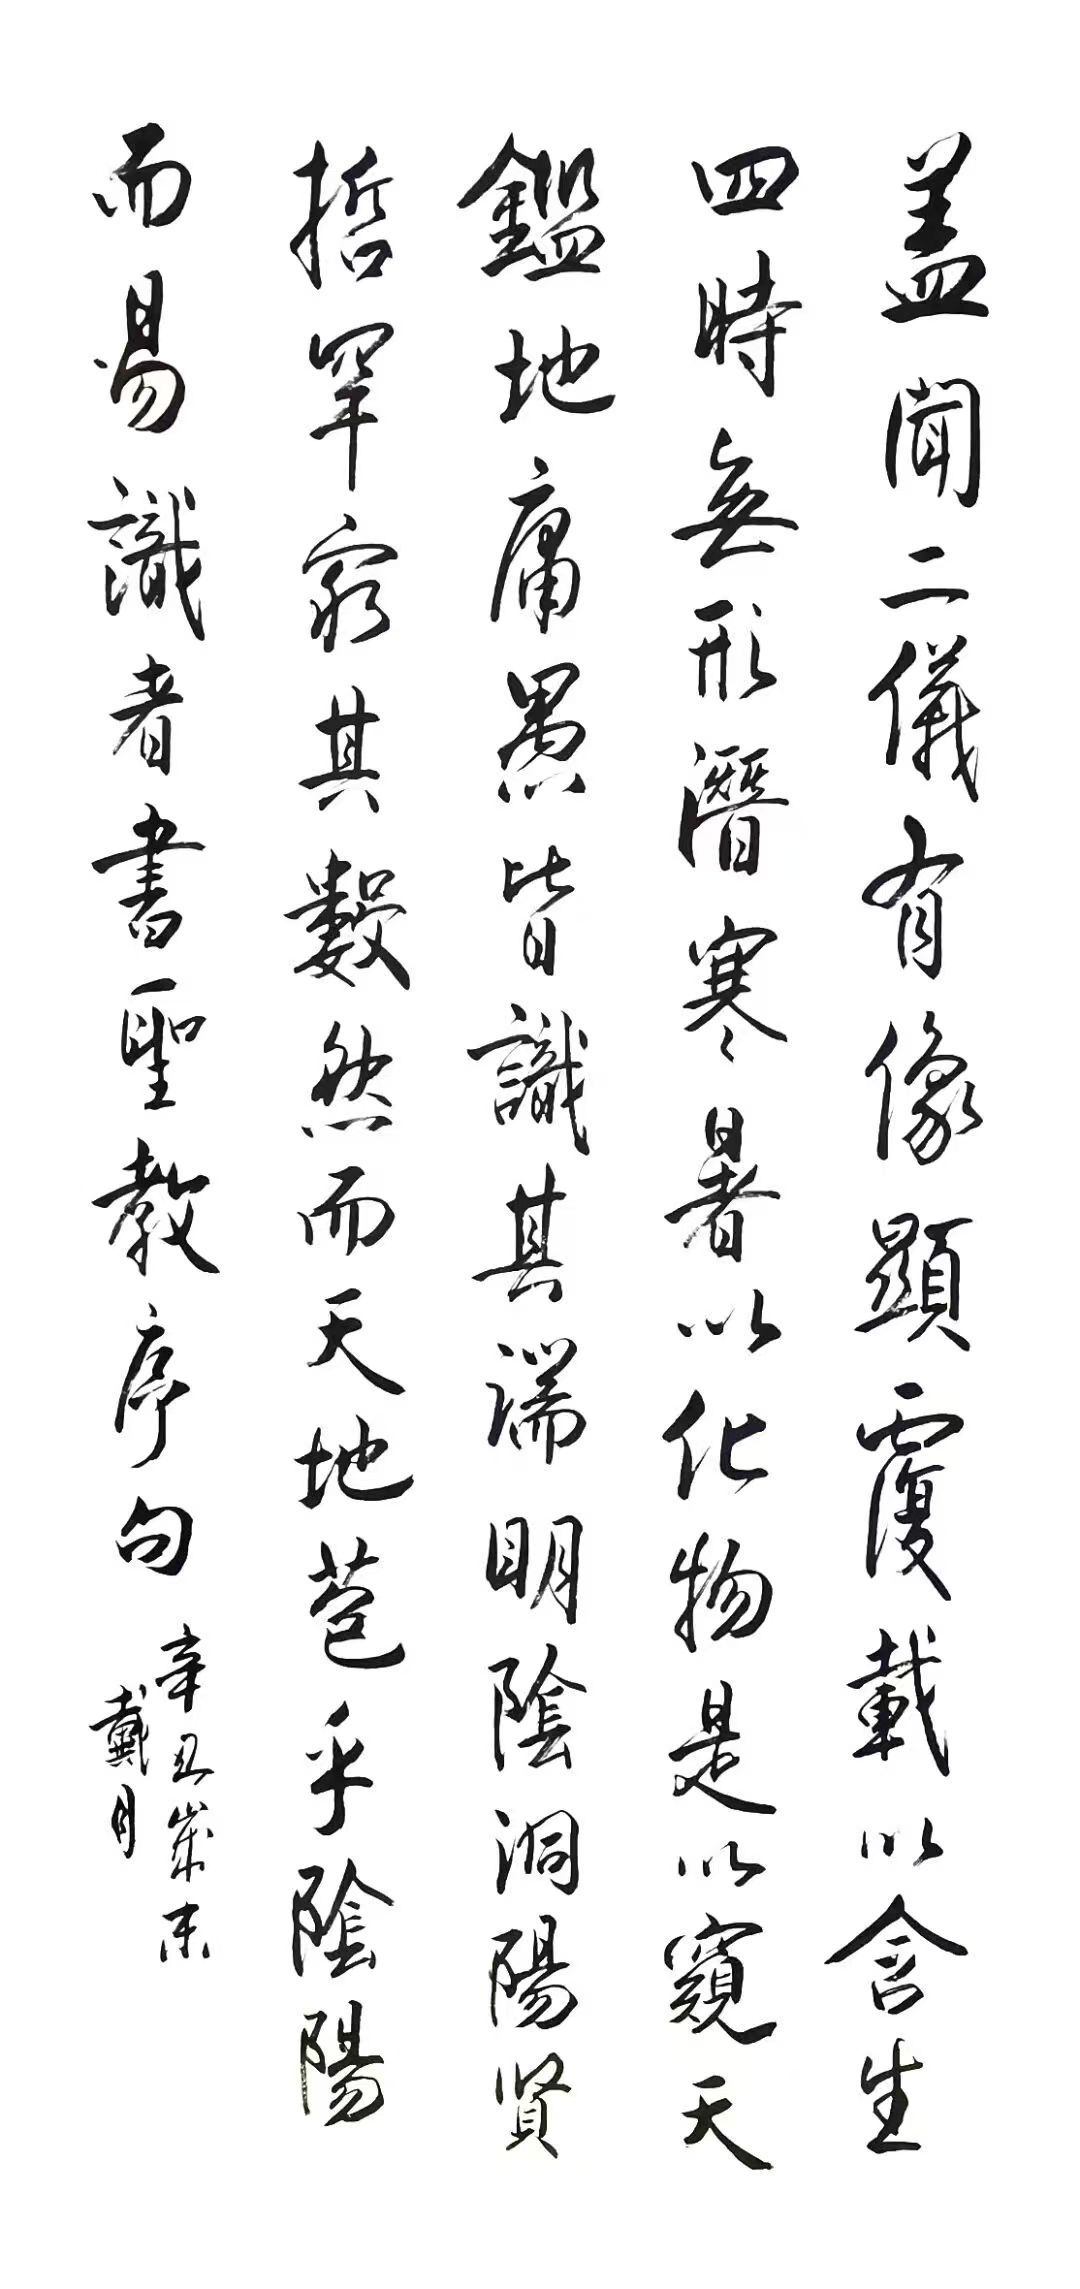 蓋聞二儀有像顯覆載以含生
四時無形潛寒暑以化物是以窺天
鑑地庸愚皆識其端明陰洞陽賢
哲罕窮其數然而天地苞乎陰陽
而易識者書聖教序句
辛丑歲末
戴月